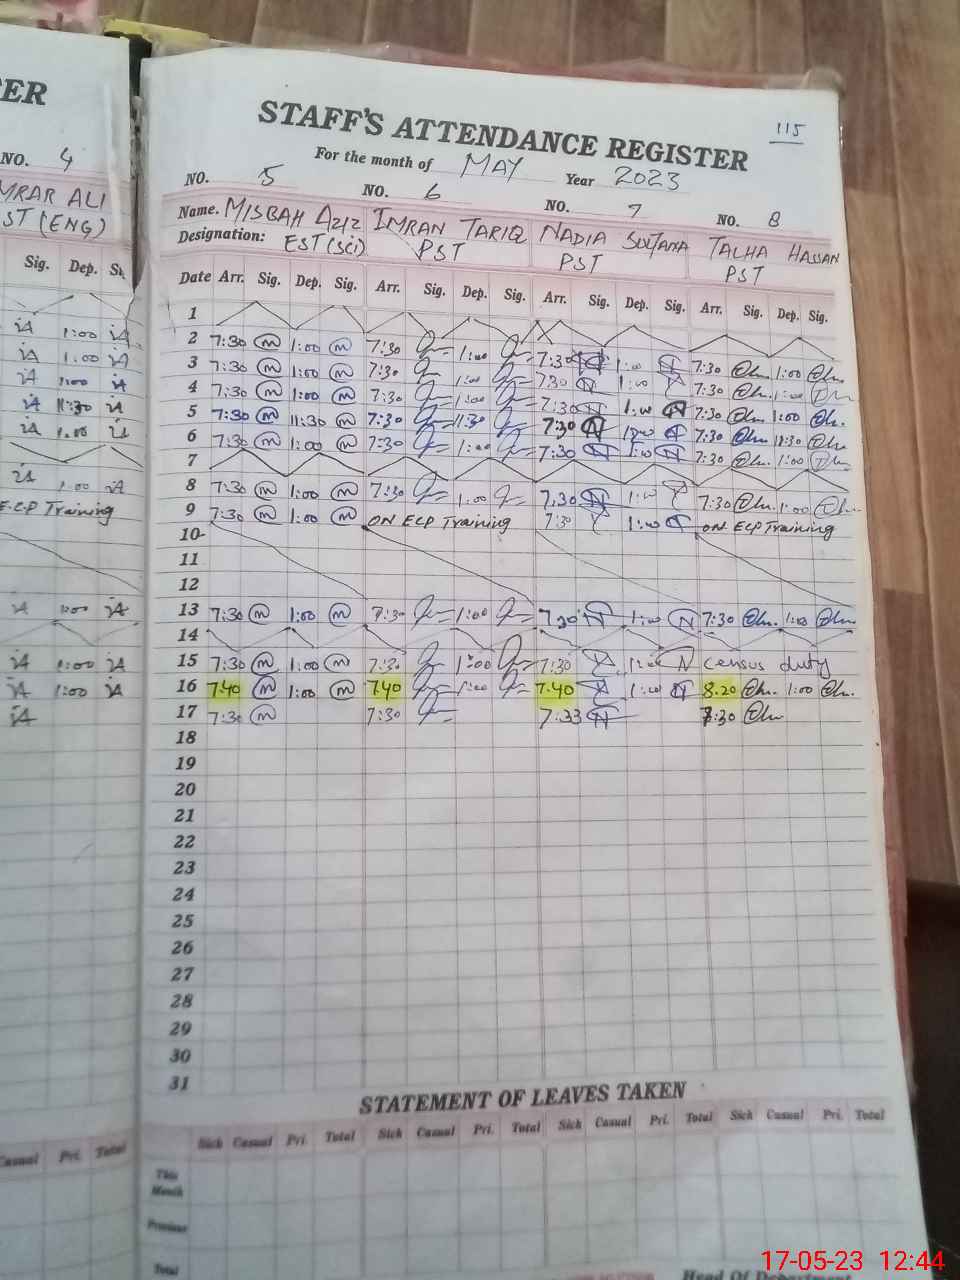 ER
NO. 4
MRAR ALI
ST (ENG)
Sig. Dep.
iA 1:00 iA
iA 1.00 iA
iA 1:00 iA
iA 11:30 iA
iA 1.00 iA
iA 1.00 iA
E.C.P Training
iA 1:00 iA
iA 1:00 iA
iA 1:00 iA
iA
Casual Pri. Total
115
STAFF'S ATTENDANCE REGISTER
For the month of MAY Year 2023
NO. 5 NO. 6 NO. 7 NO. 8
Name. MISBAH AZIZ IMRAN TARIQ NADIA SULTANA TALHA HASSAN
Designation: EST (Sci) PST PST PST
Date Arr. Sig. Dep. Sig. Arr. Sig. Dep. Sig. Arr. Sig. Dep. Sig. Arr. Sig. Dep. Sig.
1
2 7:30 m 1:00 m 7:30 1:00 7:30 1:00 7:30 1:00
3 7:30 m 1:00 m 7:30 1:00 7:30 1:00 7:30 1:00
4 7:30 m 1:00 m 7:30 1:00 7:30 1:00 7:30 1:00
5 7:30 m 11:30 m 7:30 11:30 7:30 7:30 11:30
6 7:30 m 1:00 m 7:30 1:00 7:30 1:00 7:30 1:00
7
8 7:30 m 1:00 m 7:30 1:00 7:30 1:00 7:30 1:00
9 7:30 m 1:00 m ON ECP Training 7:30 1:00 ON ECP Training
10
11
12
13 7:30 m 1:00 m 7:30 1:00 7:30 1:00 7:30 1:00
14
15 7:30 m 1:00 m 7:30 1:00 7:30 N Census duty
16 7:40 m 1:00 m 7:40 1:00 7:40 1:00 N 8.20 1:00
17 7:30 m 7:30 7:33 N 7:30
18
19
20
21
22
23
24
25
26
27
28
29
30
31
STATEMENT OF LEAVES TAKEN
Sick Casual Pri. Total Sick Casual Pri. Total Sick Casual Pri. Total Sick Casual Pri. Total
This
Month
Previous
Total
Head Of Department
17-05-23 12:44